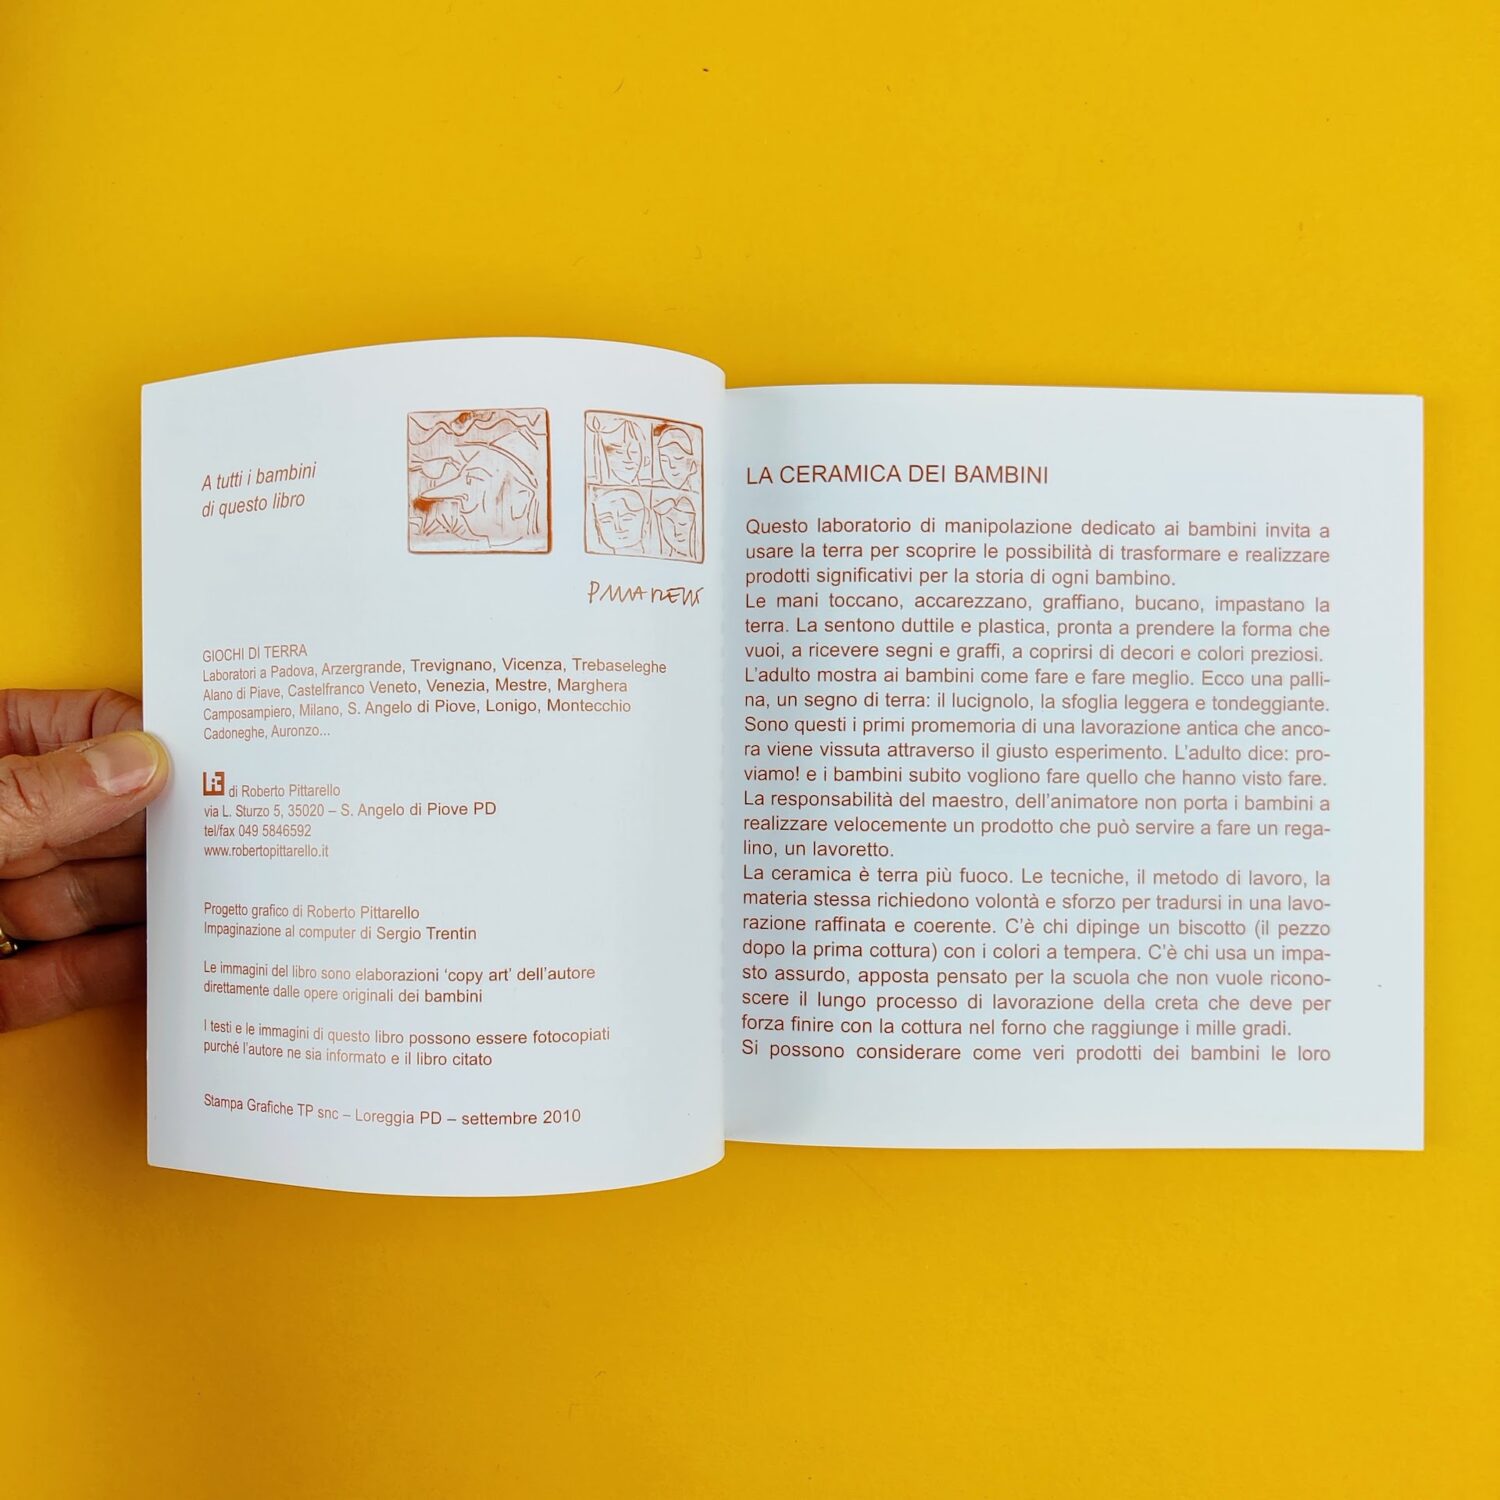 A tutti i bambini
di questo libro
GIOCHI DI TERRA
Laboratori a Padova, Arzergrande, Trevignano, Vicenza, Trebaseleghe
Alano di Piave, Castelfranco Veneto, Venezia, Mestre, Marghera
Camposampiero, Milano, S. Angelo di Piove, Lonigo, Montecchio
Cadoneghe, Auronzo...
di Roberto Pittarello
via L. Sturzo 5, 35020 – S. Angelo di Piove PD
tel/fax 049 5846592
www.robertopittarello.it
Progetto grafico di Roberto Pittarello
Impaginazione al computer di Sergio Trentin
Le immagini del libro sono elaborazioni ‘copy art’ dell’autore
direttamente dalle opere originali dei bambini
I testi e le immagini di questo libro possono essere fotocopiati
purché l’autore ne sia informato e il libro citato
Stampa Grafiche TP snc – Loreggia PD – settembre 2010
LA CERAMICA DEI BAMBINI
Questo laboratorio di manipolazione dedicato ai bambini invita a
usare la terra per scoprire le possibilità di trasformare e realizzare
prodotti significativi per la storia di ogni bambino.
Le mani toccano, accarezzano, graffiano, bucano, impastano la
terra. La sentono duttile e plastica, pronta a prendere la forma che
vuoi, a ricevere segni e graffi, a coprirsi di decori e colori preziosi.
L’adulto mostra ai bambini come fare e fare meglio. Ecco una palli-
na, un segno di terra: il lucignolo, la sfoglia leggera e tondeggiante.
Sono questi i primi promemoria di una lavorazione antica che anco-
ra viene vissuta attraverso il giusto esperimento. L’adulto dice: pro-
viamo! e i bambini subito vogliono fare quello che hanno visto fare.
La responsabilità del maestro, dell’animatore non porta i bambini a
realizzare velocemente un prodotto che può servire a fare un rega-
lino, un lavoretto.
La ceramica è terra più fuoco. Le tecniche, il metodo di lavoro, la
materia stessa richiedono volontà e sforzo per tradursi in una lavo-
razione raffinata e coerente. C’è chi dipinge un biscotto (il pezzo
dopo la prima cottura) con i colori a tempera. C’è chi usa un impa-
sto assurdo, apposta pensato per la scuola che non vuole ricono-
scere il lungo processo di lavorazione della creta che deve per
forza finire con la cottura nel forno che raggiunge i mille gradi.
Si possono considerare come veri prodotti dei bambini le loro